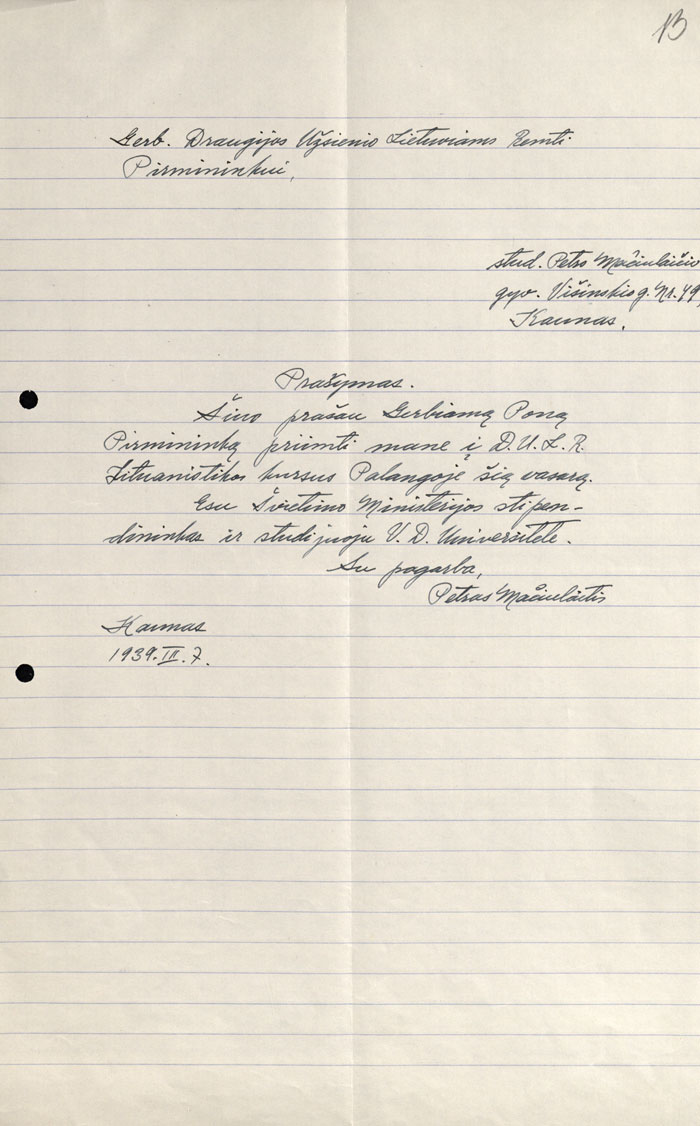 13
Gerb. Draugijos Užsienio Lietuviams Remti
Pirmininkui,
stud. Petro Mačiulaičio
gyv. Višinskio g. Nr. 49,
Kaunas.
Prašymas.
Šiuo prašau Gerbiamą Poną
Pirmininką priimti mane į D.U.L.R.
Lituanistikos kursus Palangoje šią vasarą.
Esu Švietimo Ministerijos stipen-
dininkas ir studijuoju V. D. Universitete.
Su pagarba,
Petras Mačiulaitis
Kaunas
1939.III.7.